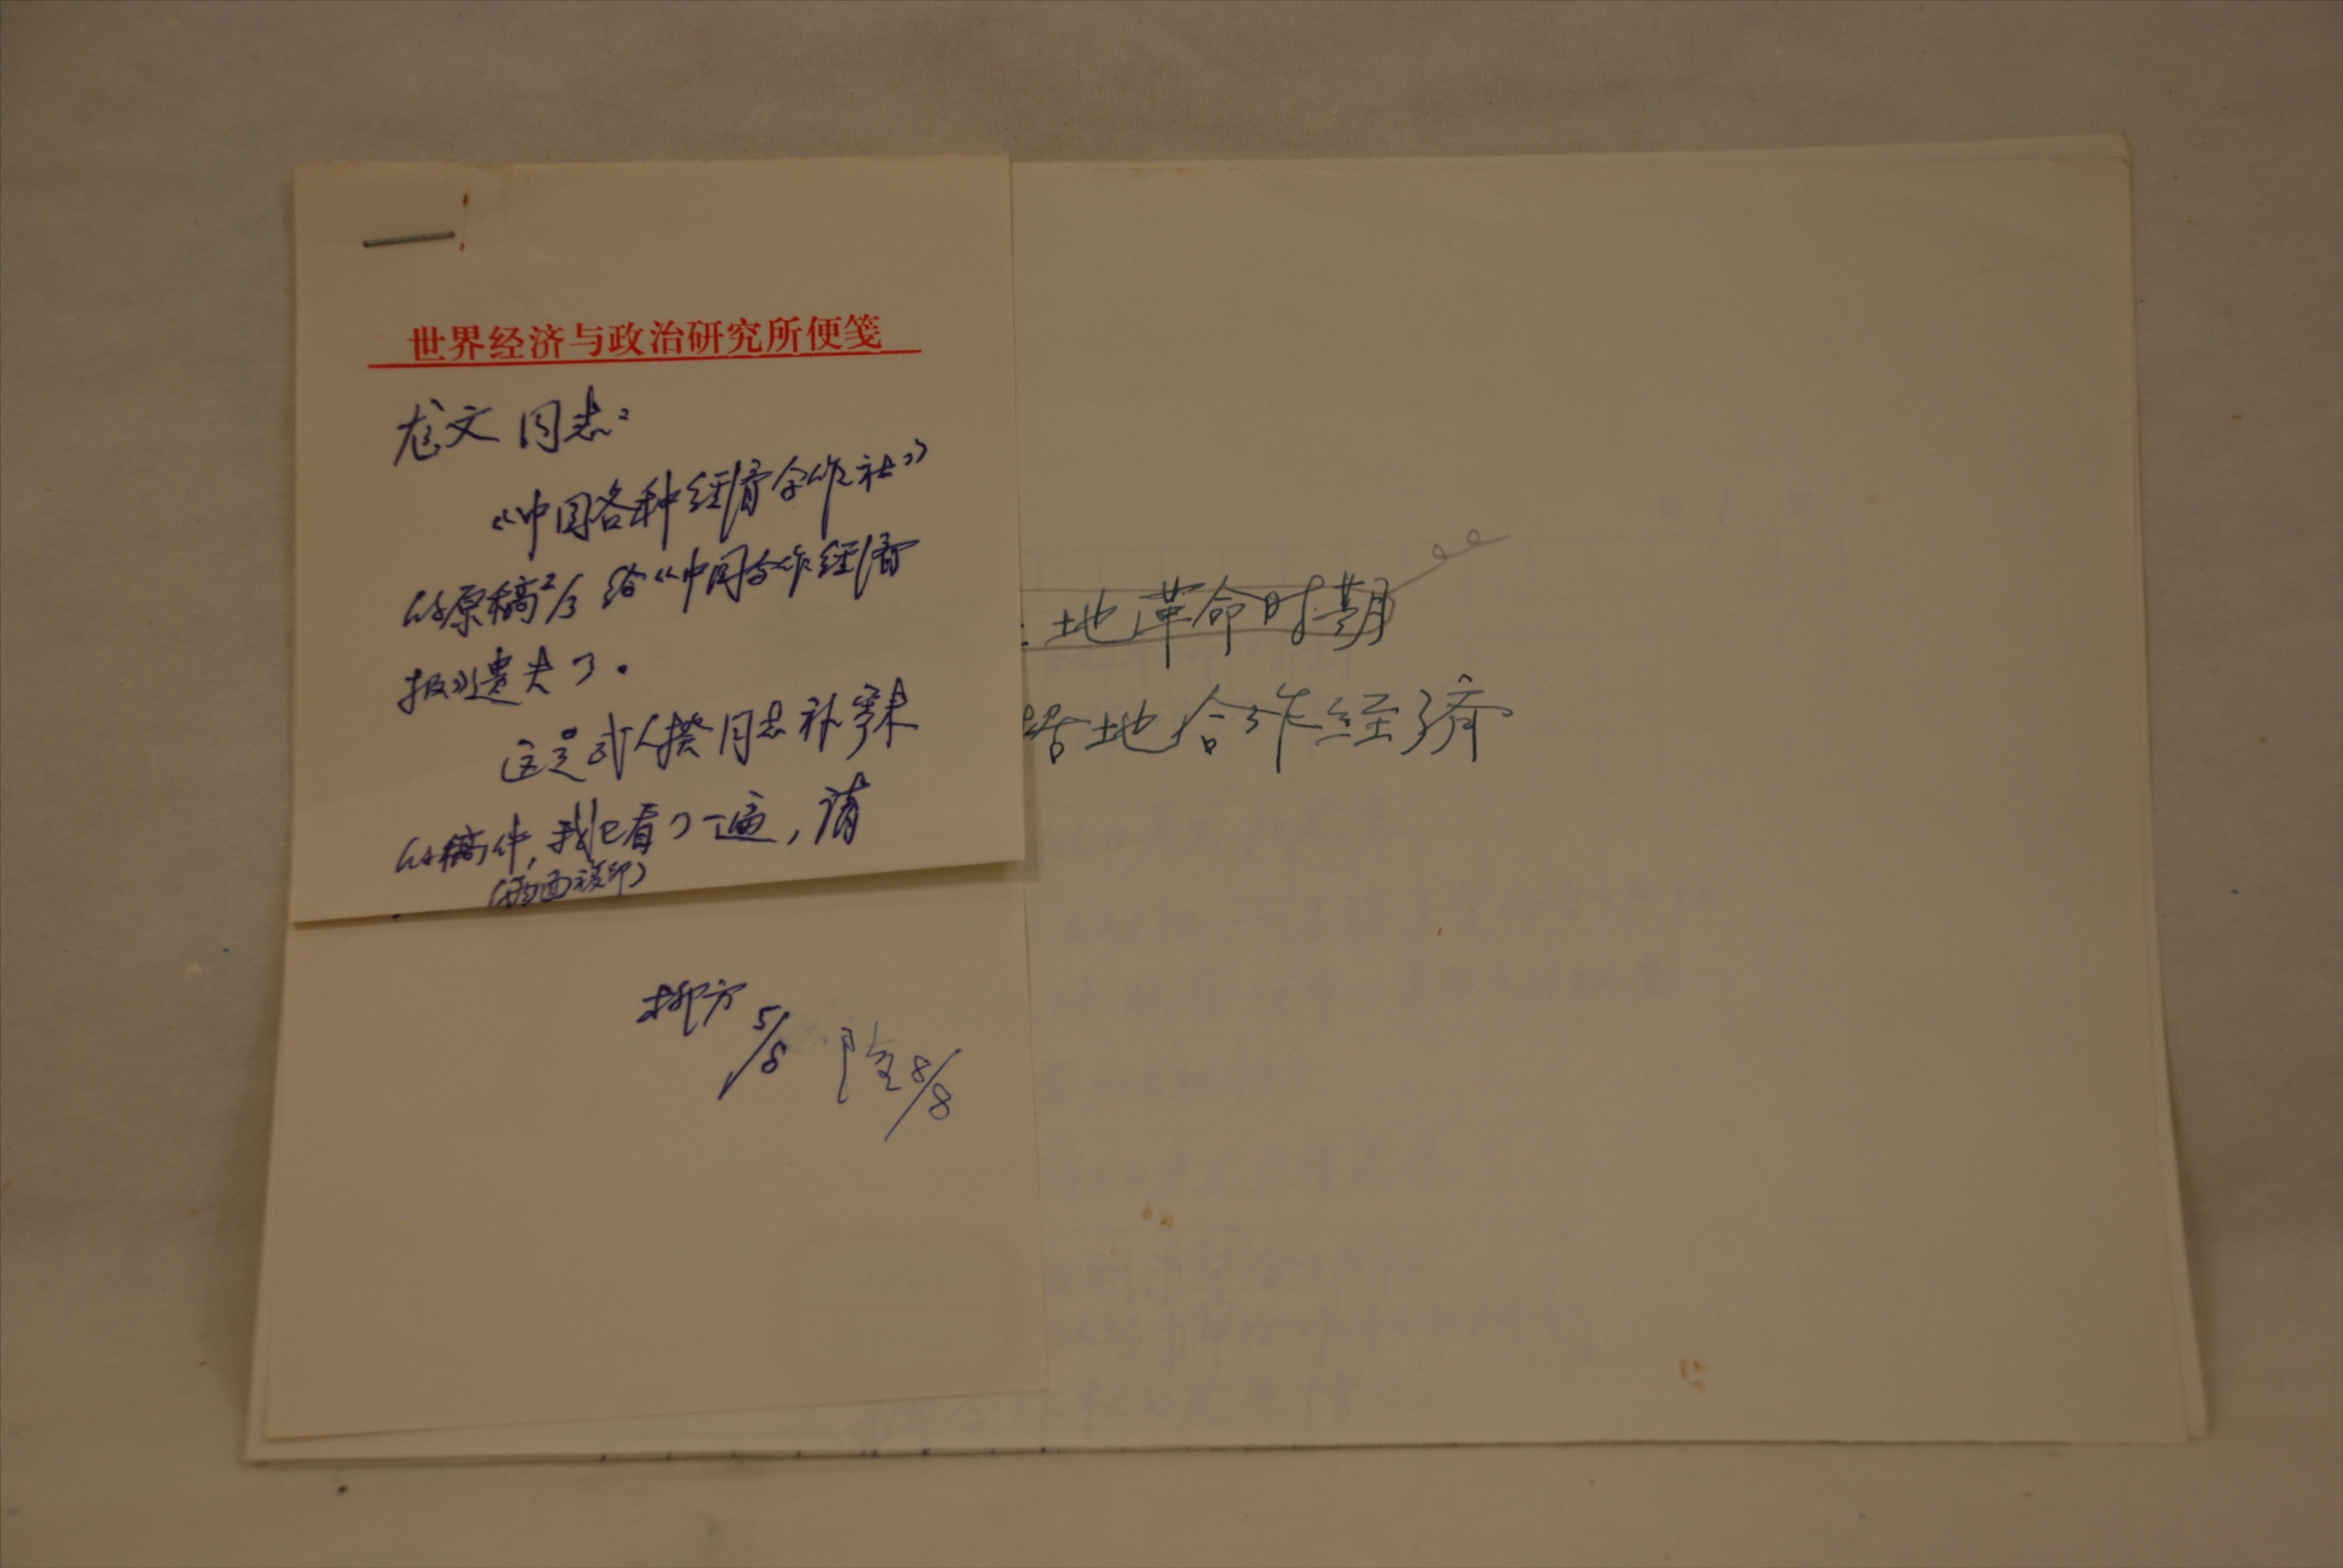 世界经济与政治研究所便笺
尨文同志:
《中国各种经济合作社》
的原稿2/3给《中国合作经济
报》遗失了。
这是武人揆同志补寄来
的稿件,我已看了一遍,请
(两面复印)
柳方 5/8
8/8
地革命时期
地合作经济